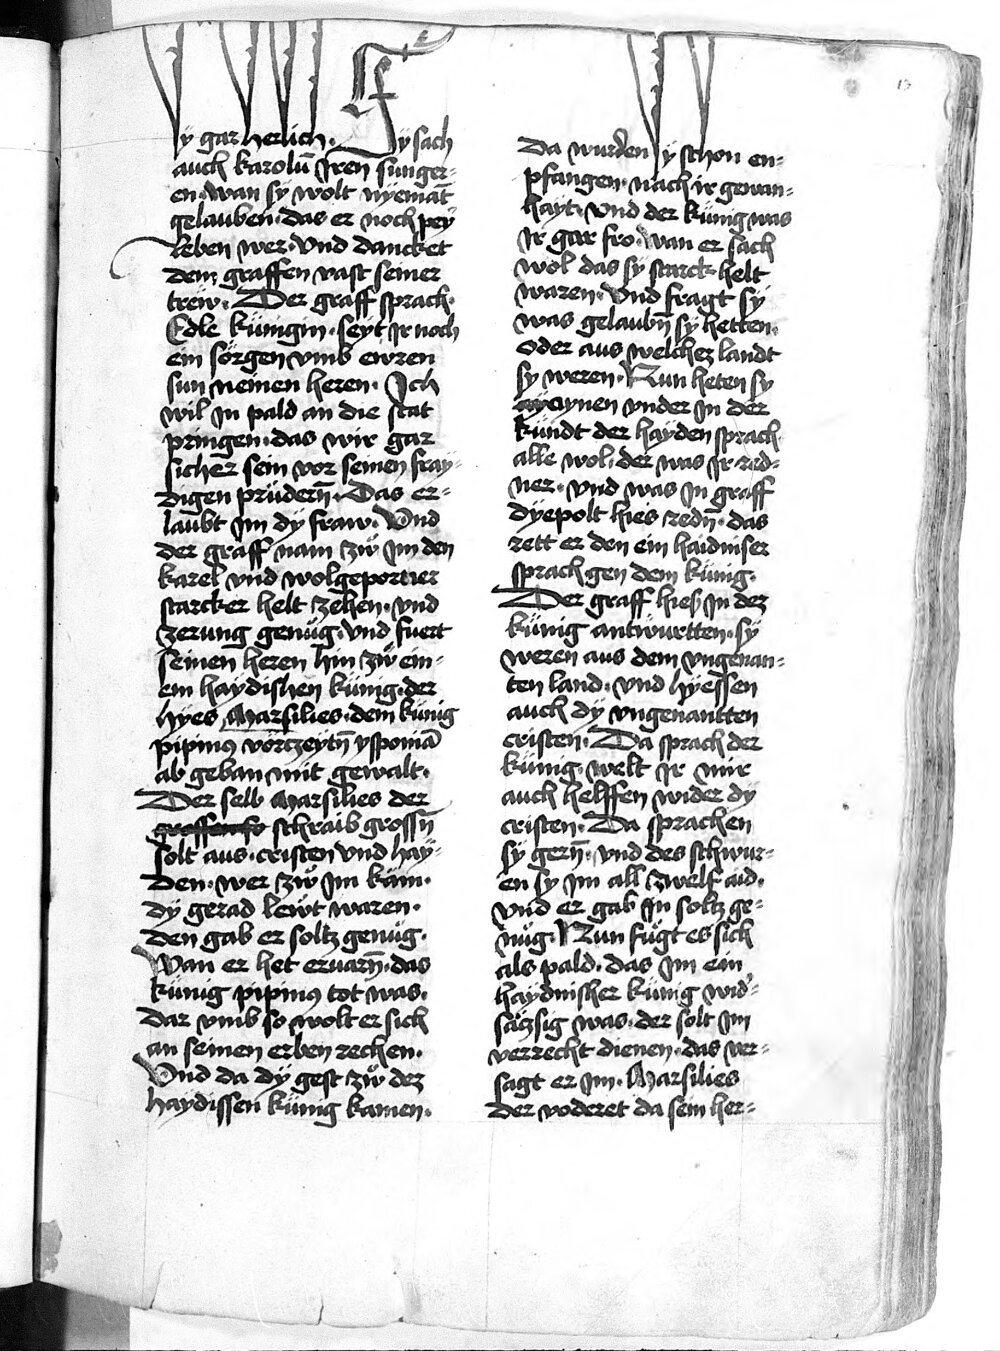 sy gar herlich. Sy sach
auch karolū Jren sun ger-
en. wan sy wolt nyemāt
gelauben. das er noch pey
leben wer. Vnd dancket
dem graffen vast seiner
trëw. Der graff sprach.
Edle künigin. seyt Jr noch
ein sörgen vmb ewren
sun meinen heren. Ich
wil In pald an die stat
pringen. das wir gar
sicher sein vor seinen fray-
digen prüdern̄. Das er-
laubt Jm dÿ fraw. Vnd
der graff nam zwͦ Jm den
karel vnd wolgeporner
starcker helt zehen. vnd
zerung genuͦg. vnd fuert
seinen heren hin zwͦ ein-
em haÿdishen künig. der
hÿes Marsilies. dem künig
pipinus vörczeytn̄ ysponiā
ab geban mit gewalt.
Der selb Marsilies der
schraib grossn̄
solt aus. cristen vnd haÿ-
den. wer zwͦ Jm käm.
dÿ gerad lewt waren.
den gab er soltz genuͦg.
Wan er het ervarn̄. das
künig pipinus tot was.
Dar vmb so wolt er sich
an seinen erben rechen.
Vnd da dÿ gest zwͦ dez
haÿdissen künig kamen.
Da wurden sy schon en-
pfangen. nach ir gewan-
hayt. Vnd der künig was
Ir gar fro. Wan er sach
wol das sÿ starck helt
waren. Vnd fragt sÿ
was gelaubn̄ sÿ hetten.
oder aus welchez landt
sy weren. Nun heten sy
aynen vnder In der
kündt der haÿden sprach
alle wol. der was Jr red-
ner. Vnd was In graff
dÿepolt hies redn̄. das
rett er den ein haidniser
sprach gen dem künig.
Der graff hieß In dez
künig antwurtten. sÿ
weren aus dem vngenan-
ten land. vnd hÿessen
auch dÿ vngenantten
cristen. Da sprach der
künig. welt Jr mir
auch helffen wider dÿ
cristen. Da sprachen
sÿ gern̄. vnd des schwur-
en sy Jm all zwelf aid.
vnd er gab In soltz ge-
nuͦg. Nun fuͤgt es sich
als pald. das Jm ein
haÿdnisher künig wid'-
säzsig was. der solt Jm
verrecht dienen. das ver-
sagt er Jm. Marsilies
der voderet da sein her-